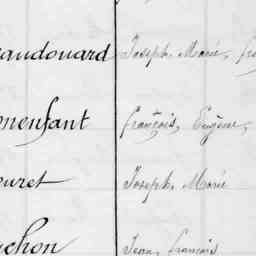 audouard Joseph, Marie, fr
onenfant françois, Eugène,
ouret Joseph, Marie
uchon Jean, françois